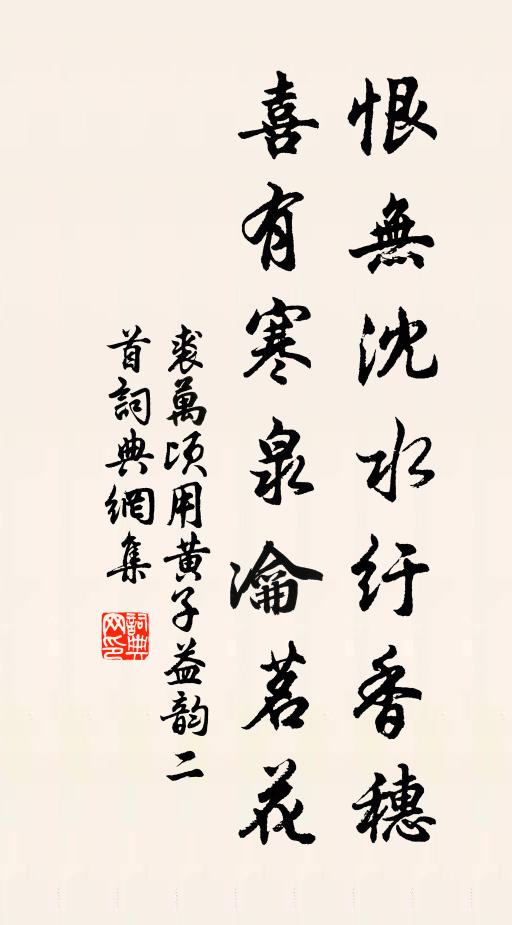 恨無沈水紆香穗
喜有寒泉瀹茗花
裘萬頃用黄子益韵二
首詞典網集
詞典网印